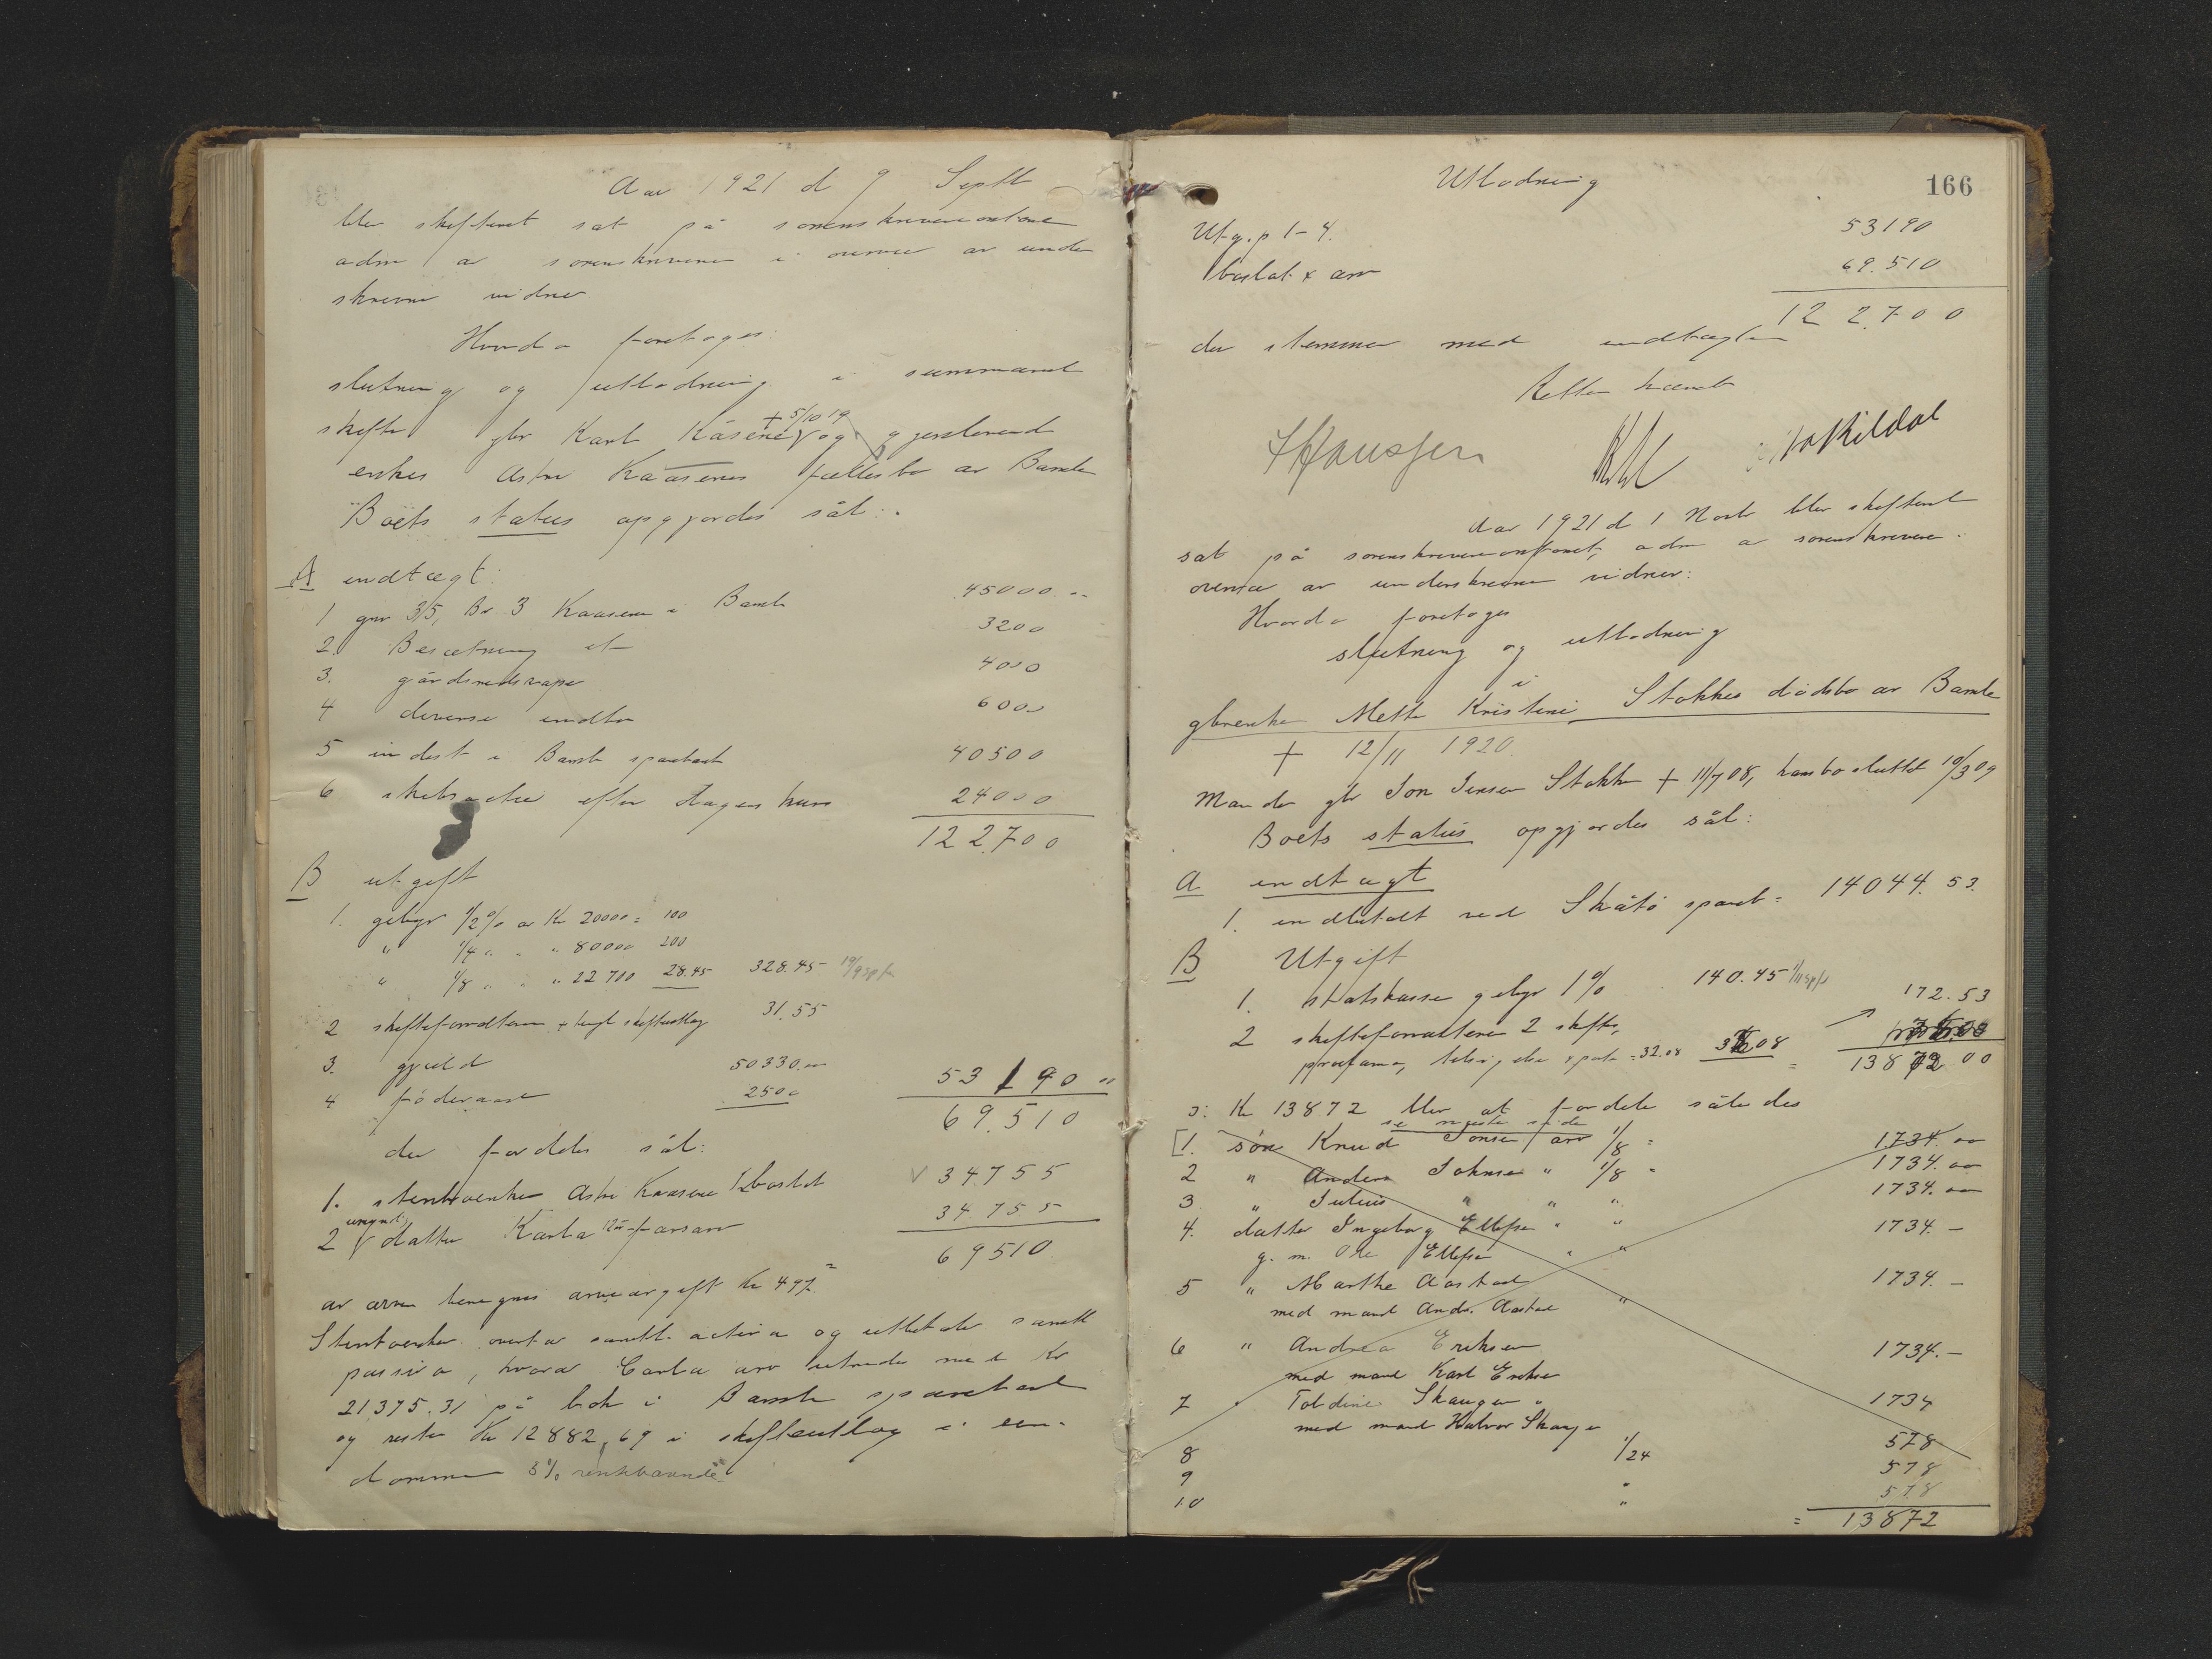 Aar 1921 d 9 Septb
blev skifteret sat på sorenskriverkontoret
adm av sorenskriveren i overvær av under
skrevne vidner
Hvorda foretoges:
slutning og utlodning i summarisk
skifte gbr Karl Kåsene + 5/10 19 og gjenlevende
enkes Astri Kaasenes fællesbo av Bamle
Boets status opgjordes sål:
A indtægt:
1 gnr 35, Br 3 Kaasene i Bamle 45000.--
2. Besætning etc 3200
3. gårdsredskaper 4000
4 diverse indbo 6000
5 indest i Bamle sparebank 40500
6 skibsactier efter dagens kurs 24000
122.700
B utgift
1. gebyr 1/2 % av Kr 20000 = 100
" 1/4 " " " 80000 200
" 1/8 " " " 22700 28.45 328.45
2 skifteforvalteren + tingl skifteutlæg 31.55
3. gjæld 50330.00
4 føderaad 2500 53190 "
69.510
der fordeles sål:
1. stentvenken Astri Kaasene 1/2 boslod 34755
2 umynd. datter Karla 12 år farsarv 34.755
69510
av arven beregnes arveavgift Kr 497.=
overtar samtl. activa og utbetaler samtl
passiva, hvorav Carla arv utredes med Kr
21375.31 på bok i Bamle sparebank
og resten Kr 12882,69 i skifteutlæg i eien-
dommen 5% rentebærende
Utlodning 166
Utg. p 1-4. 53190
boslod + arv 69.510
122.700
der stemmer med indtægten
Retten hævet
Aar 1921 d 1 Novb blev skifteret
sat på sorenskriverkontoret, adm av sorenskriveren i
overvær av underskrevne vidner:
Hvorda foretoges
slutning og utlodning
i
gbrenke Mette Kristine Stokkes dødsbo av Bamle
+ 12/11 1920.
Manden gbr Jon Jensen Stokke + 11/7 08, hans bo sluttet 10/3 09
Boets status opgjordes sål:
A indtægt
1. indbetalt ved Skåtø spareb = 14044.53.
B Utgift
1. statskassen gebyr 1% 140.45
2 skifteforvalteren 2 skifter, 172.53
proclama, tilsigelse + porto = 32.08 32.08 = 13872 00
ɔ: Kr 13872 blev at fordele således
se næste side
[1. søn Knud Jonsen arv 1/8 = 1734.00
2 " Anders Johnsen " 1/8 " 1734.00
3 " Julius " " " 1734.00
4. datter Ingeborg Ellefsen " " 1734.-
g. m. Ole Ellefsen " "
5 " Marthe Aastad 1734.-
med mand Andr. Aastad "
6 " Andrea Eriksen 1734.-
med mand Karl Eriksen
7 " Toldine Skaugen " 1734
med mand Halvor Skaugen
8 1/24 578
9 " 578
10 " 578
= 13872